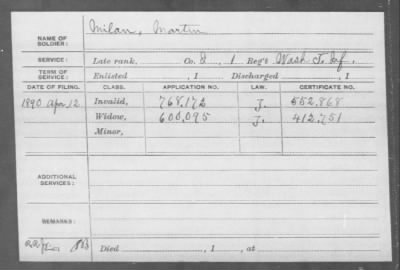 NAME OF SOLDIER: Milan, Martin
SERVICE: Late rank, Co. 1 Reg't Wash. T. Inf.
TERM OF SERVICE: Enlisted , 1 Discharged , 1
DATE OF FILING. CLASS. APPLICATION NO. LAW. CERTIFICATE NO.
1890 Apr. 12 Invalid, 768,172 J. 552,868
Widow, 600,095 J. 412,751
Minor,
ADDITIONAL SERVICES:
REMARKS:
Died , 1 , at